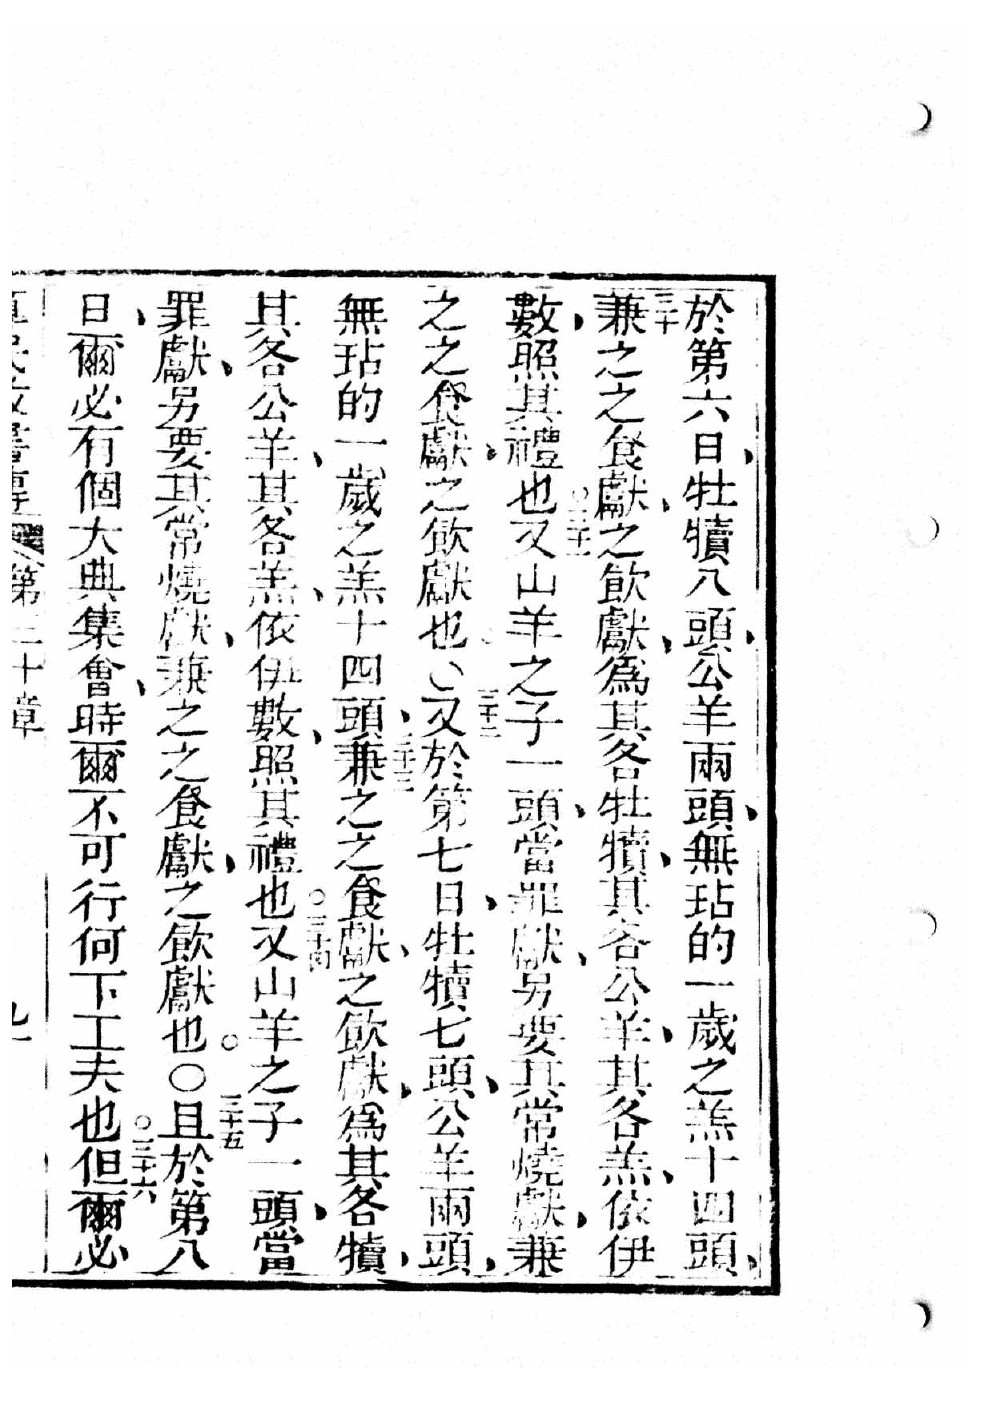 於第六日牡犢八頭公羊兩頭無玷的一歲之羔十四頭
三十兼之之餐獻之飲獻為其各牡犢其各公羊其各羔依伊
數照其禮也○三十一又山羊之子一頭當罪獻另要其常燒獻兼
之之餐獻之飲獻也○三十二又於第七日牡犢七頭公羊兩頭
無玷的一歲之羔十四頭三十三兼之之食獻之飲獻為其各犢
其各公羊其各羔依伊數照其禮也○三十四又山羊之子一頭當
罪獻另要其常燒獻兼之之餐獻之飲獻也○三十五且於第八
日爾必有個大典集會時爾不可行何下工夫也○三十六但爾必
民數書傳 第三十章